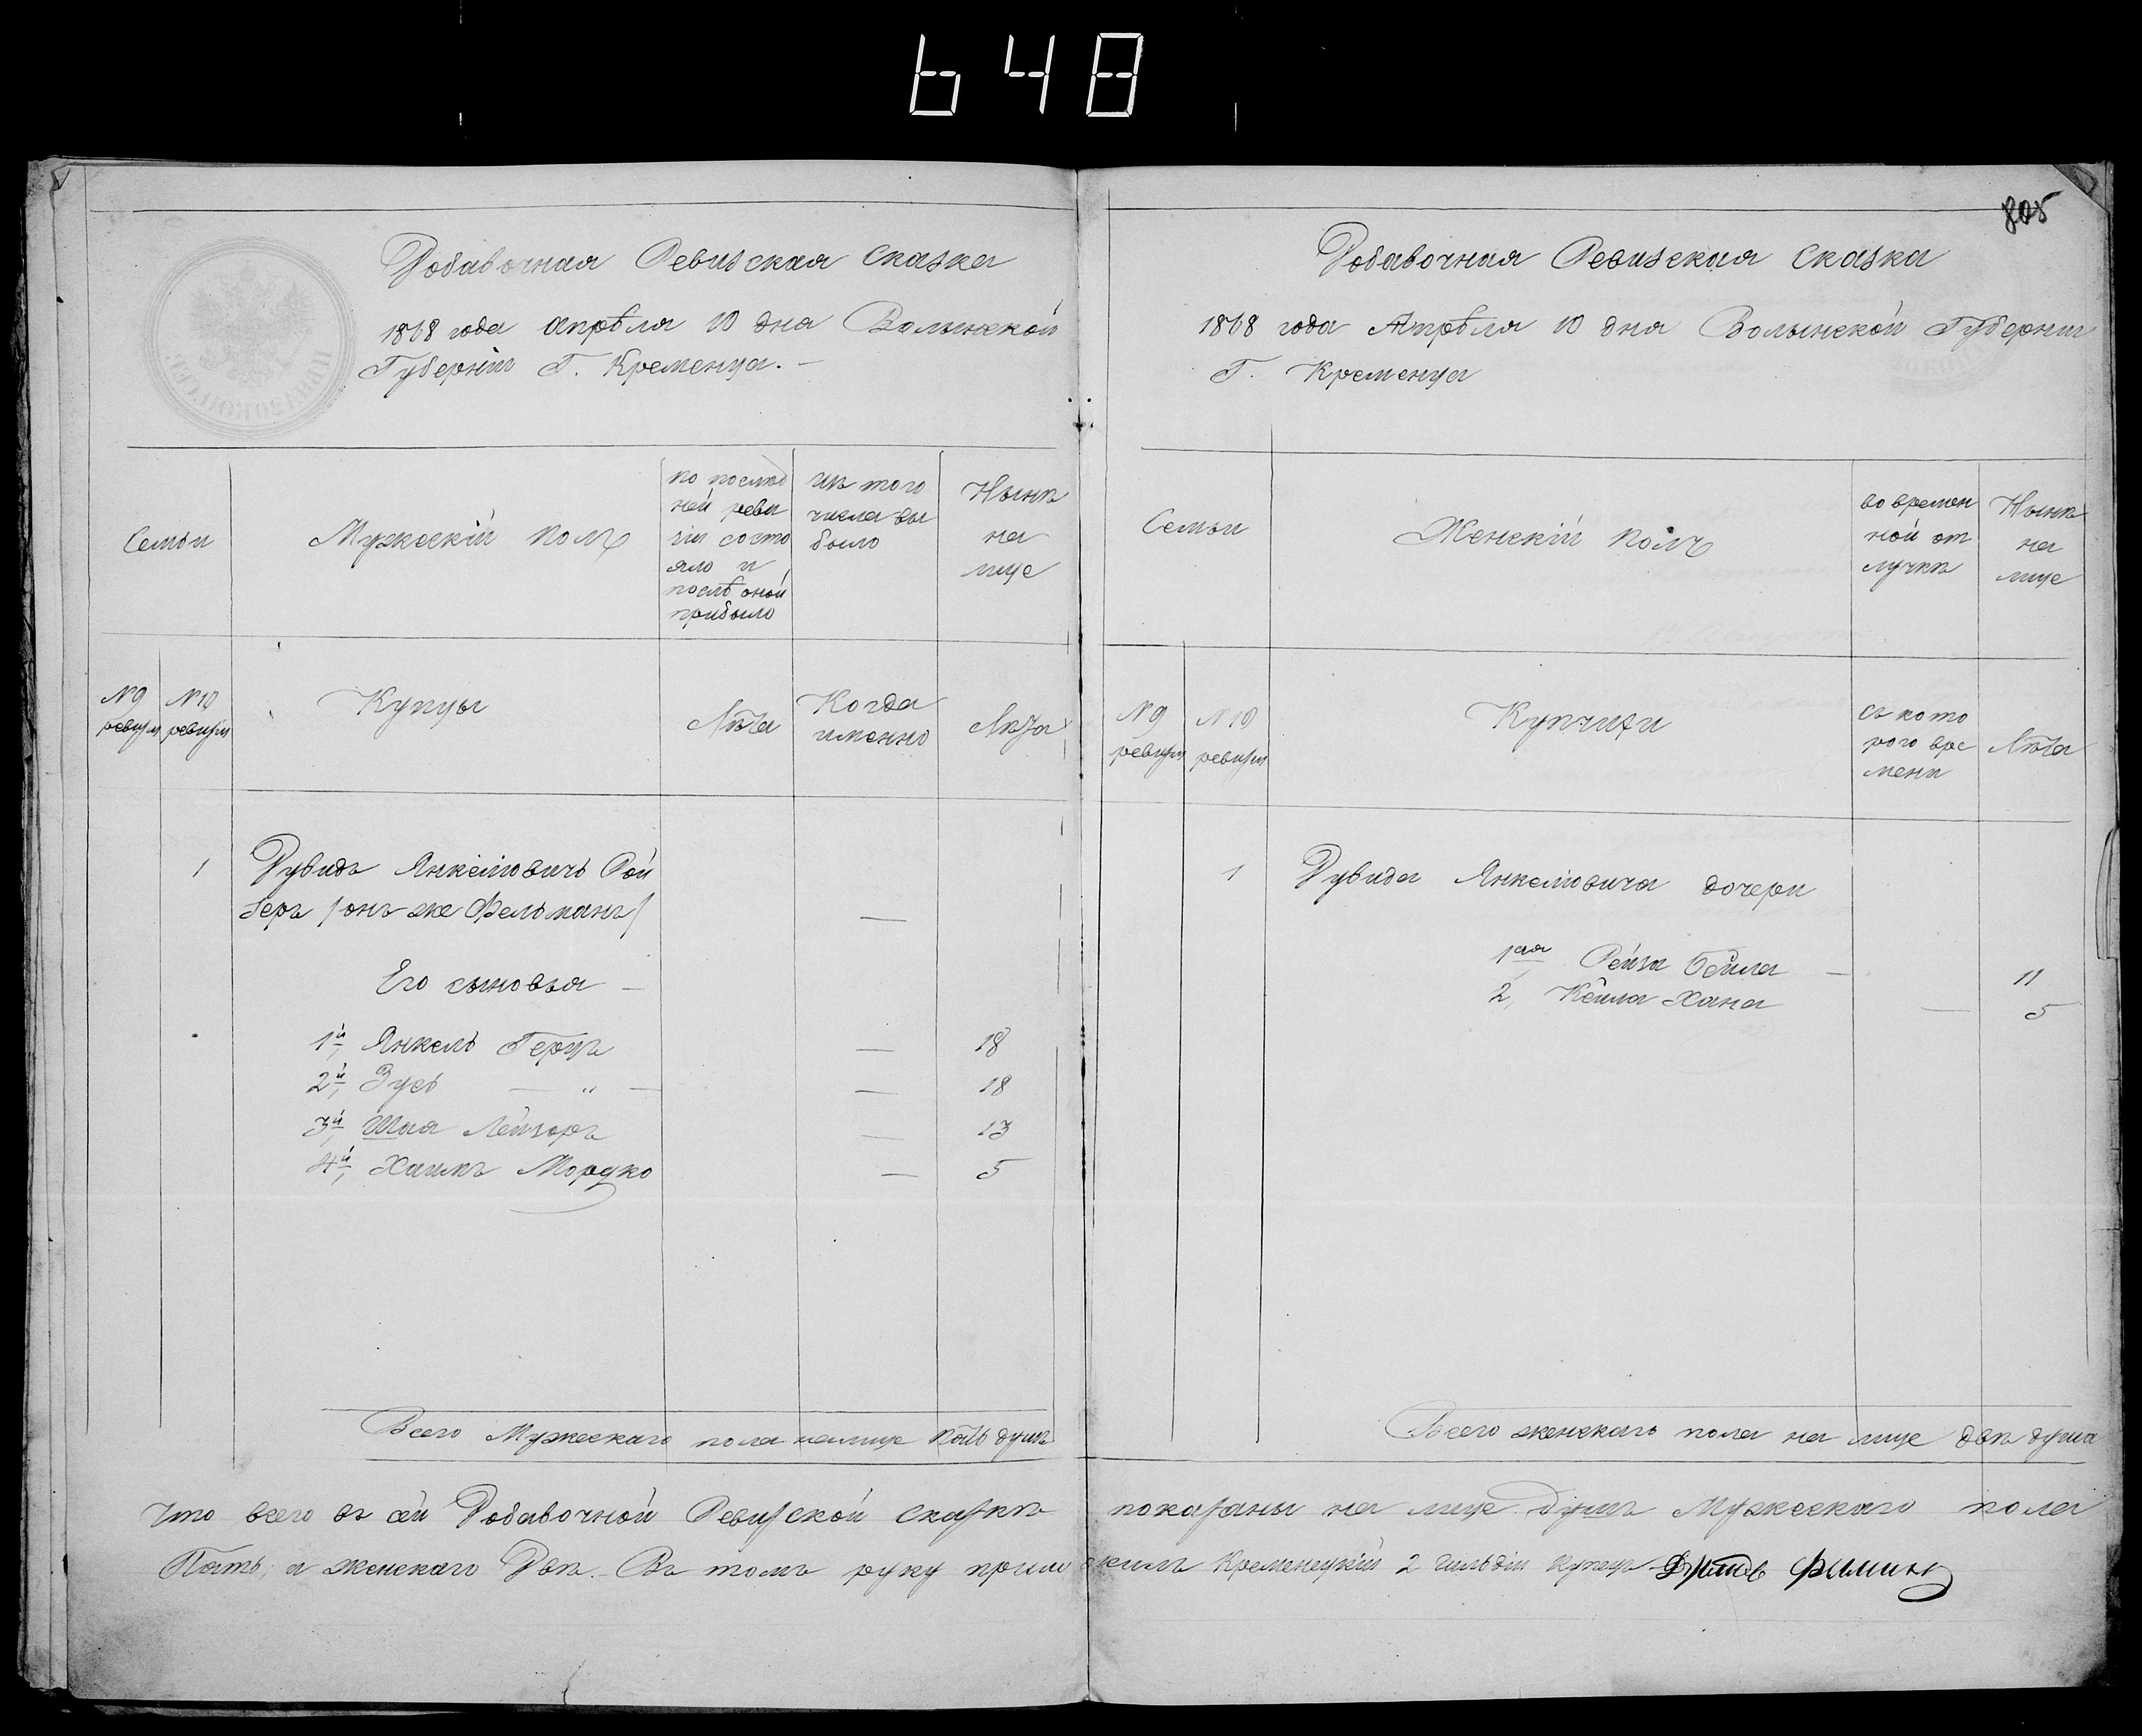 648
805
Добавочная Ревизская Сказка
1868 года апрѣля 10 дня Волынской
Губерніи Г. Кременца. —
Семьи
Мужескій полъ
по послѣд
ней реви
зіи состо
яло и
послѣ оной
прибыло
изъ того
числа вы
было
Нынѣ
на
лице
№ 9 ревизіи
№ 10 ревизіи
Купцы
Лѣта
Когда
именно
Лѣта
1 Дувидъ Янкелювичъ Рой
берь /онъ же Фельманъ/ —
Его сыновья —
1й, Янкель Герцъ — 18
2й, Зусь — „ — — 18
3й, Шая Лейзоръ — 13
4й, Хаимъ Мордко — 5
Всего Мужескаго пола налице пять душъ
Добавочная Ревизская Сказка
1868 года Апрѣля 10 дня Волынской Губерніи
Г. Кременца
Семьи
Женскій полъ
во времен
ной от
лучкѣ
Нынѣ
на
лице
№ 9 ревизіи
№ 10 ревизіи
Купчихи
съ кото
рого вре
мени
Лѣта
1 Дувида Янкелювича дочери
1ая Рейза Бейла — 11
2, Кейла Хана — 5
Всего женскаго пола на лице двѣ душа
Что всего въ сей Добавочной Ревизской сказкѣ показаны на лице душъ Мужескаго пола
Пять, а женскаго Двѣ. — Въ томъ руку приложилъ Кременецкій 2 гильдіи купецъ